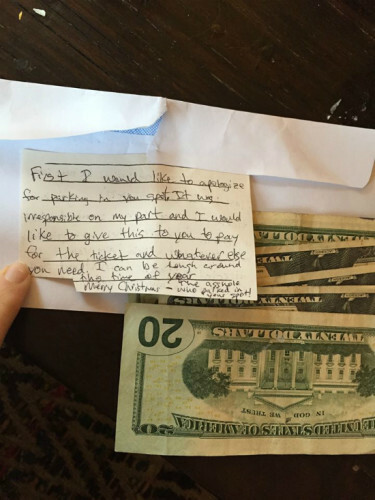 First I would like to apologize
for parking in you spot. It was
irresponsible on my part and I would
like to give this to you to pay
for the ticket and whatever else
you need. I can be tough around
this time of year
Merry Christmas - The asshole
who parked in
your spot!
20
TWENTY DOLLARS
IN GOD WE TRUST
UNITED STATES OF AMERICA
20